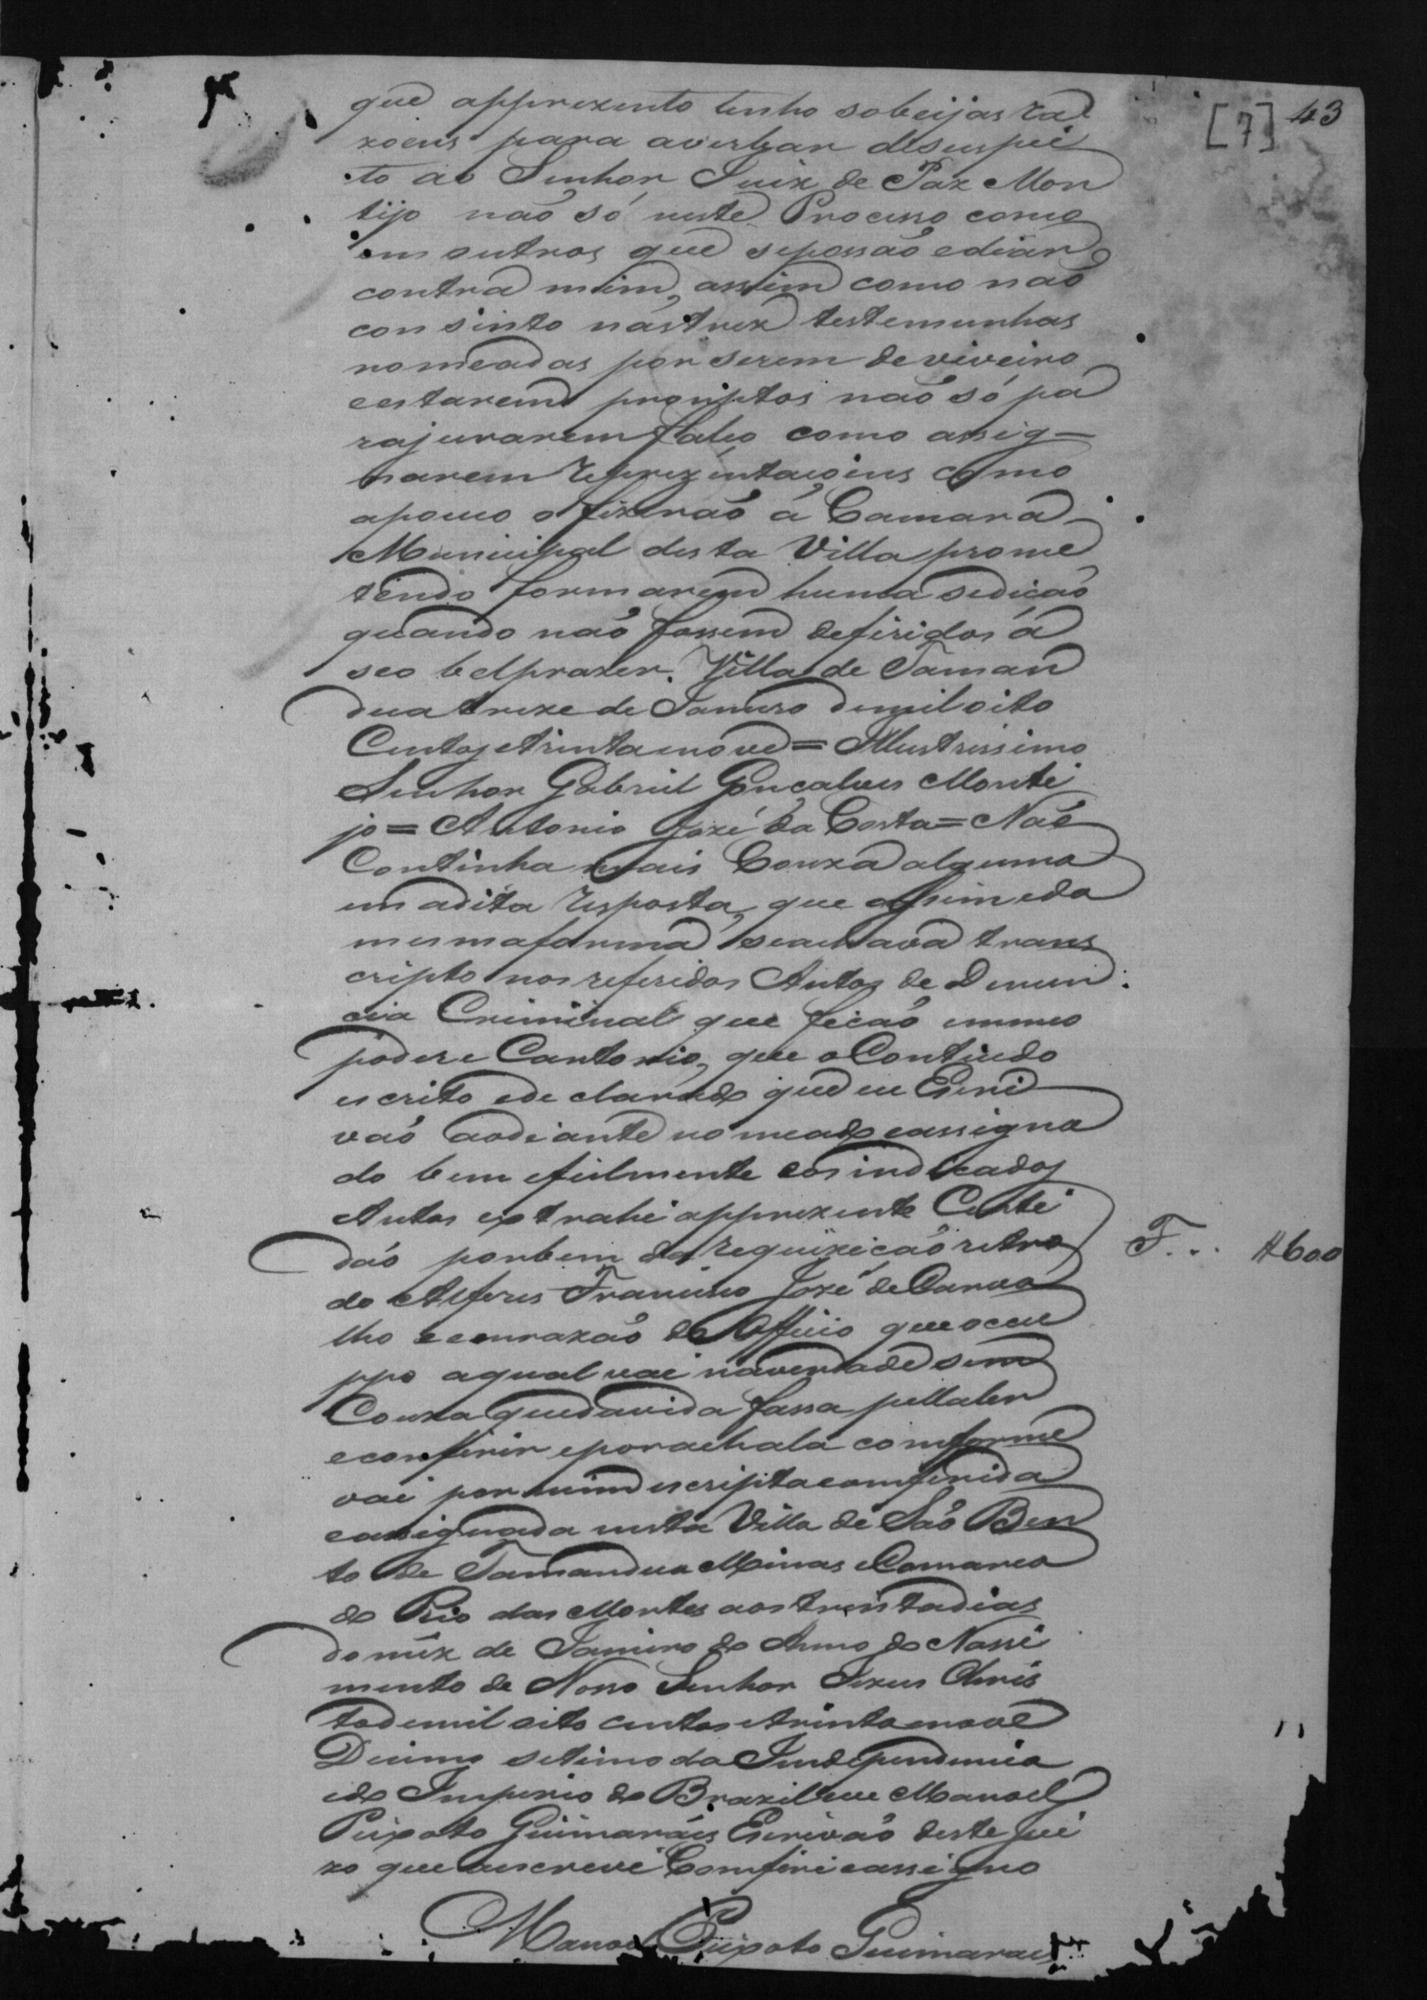 [7] 43
que apprezento tenho sobeijas ra
zoens para averbar desuspei
to ao Senhor Juiz de Paz Mon
tijo naõ só neste Processo como
em outros que sepossaõ ediar
contra mim, assim como naõ
consinto nastrez testemunhas
nomeadas por serem de viveiro
eestarem promptos naõ só pa
rajurarem falço como assig=
narem reprezentacoins como
apouco o fizeraõ á Camara
Municipal desta Villa prome
tendo formarem huma sediçaõ
quando naõ fossem defiridos á
seo belprazer. Villa de Taman
dua treze de Janeiro demil oito
Centos etrinta enove = Illustrissimo
Senhor Gabriel Gonçalves Monti
jo = Antonio Jozé da Costa = Naõ
Continha mais Couza alguma
em adita resposta, que assim eda
mesmaforma seachava trans
cripto nos referidos Autos de Denun
cia Criminal que ficaõ emmeo
poder e Cartorio, que o Contiudo
escrito ede clarado que eu Escri
vaõ aodiante nomeado eassigna
do bem efielmente dos indicados
Autos extrahi apprezente Certi
daõ porbem da requiziçaõ retro
do Alferes Francisco Jozé de Carva
lho e emrazaõ do Officio que occu
ppo aqual vai naverdade sem
Couza quedúvida fassa pella ler
econferir eporachala comforme
vai por mim escripta comferida
eassignada nesta Villa de Saõ Ben
to de Tamandua Minas e Comarca
do Rio das Mortes aos trinta dias
do mêz de Janeiro do Anno do Nassi
mento de Nosso Senhor Jezus Chris
to demil oito centos etrinta enove
Decimo setimo da Independencia
edo Imperio do Brazil eu Manoel
Peixoto Guimarães Escrivaõ deste Jui
zo que escrevi Comferi eassigno
Manoel Peixoto Guimaraes
F... #600